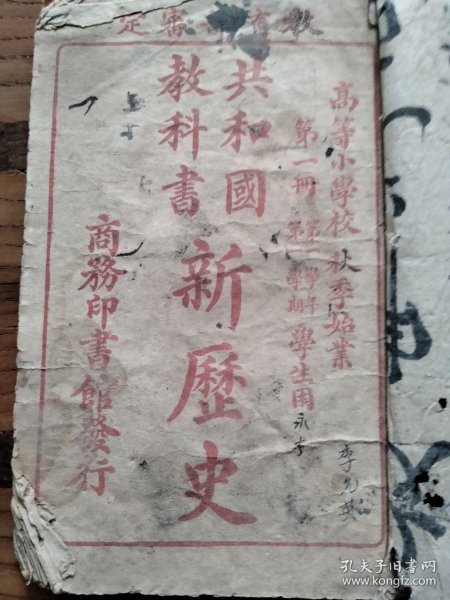 教育部審定
高等小學校 秋季始業
第一冊 第一學年 第一學期 學生用
共和國
教科書
新歷史
商務印書館發行
孔夫子旧书网
www.kongfz.com